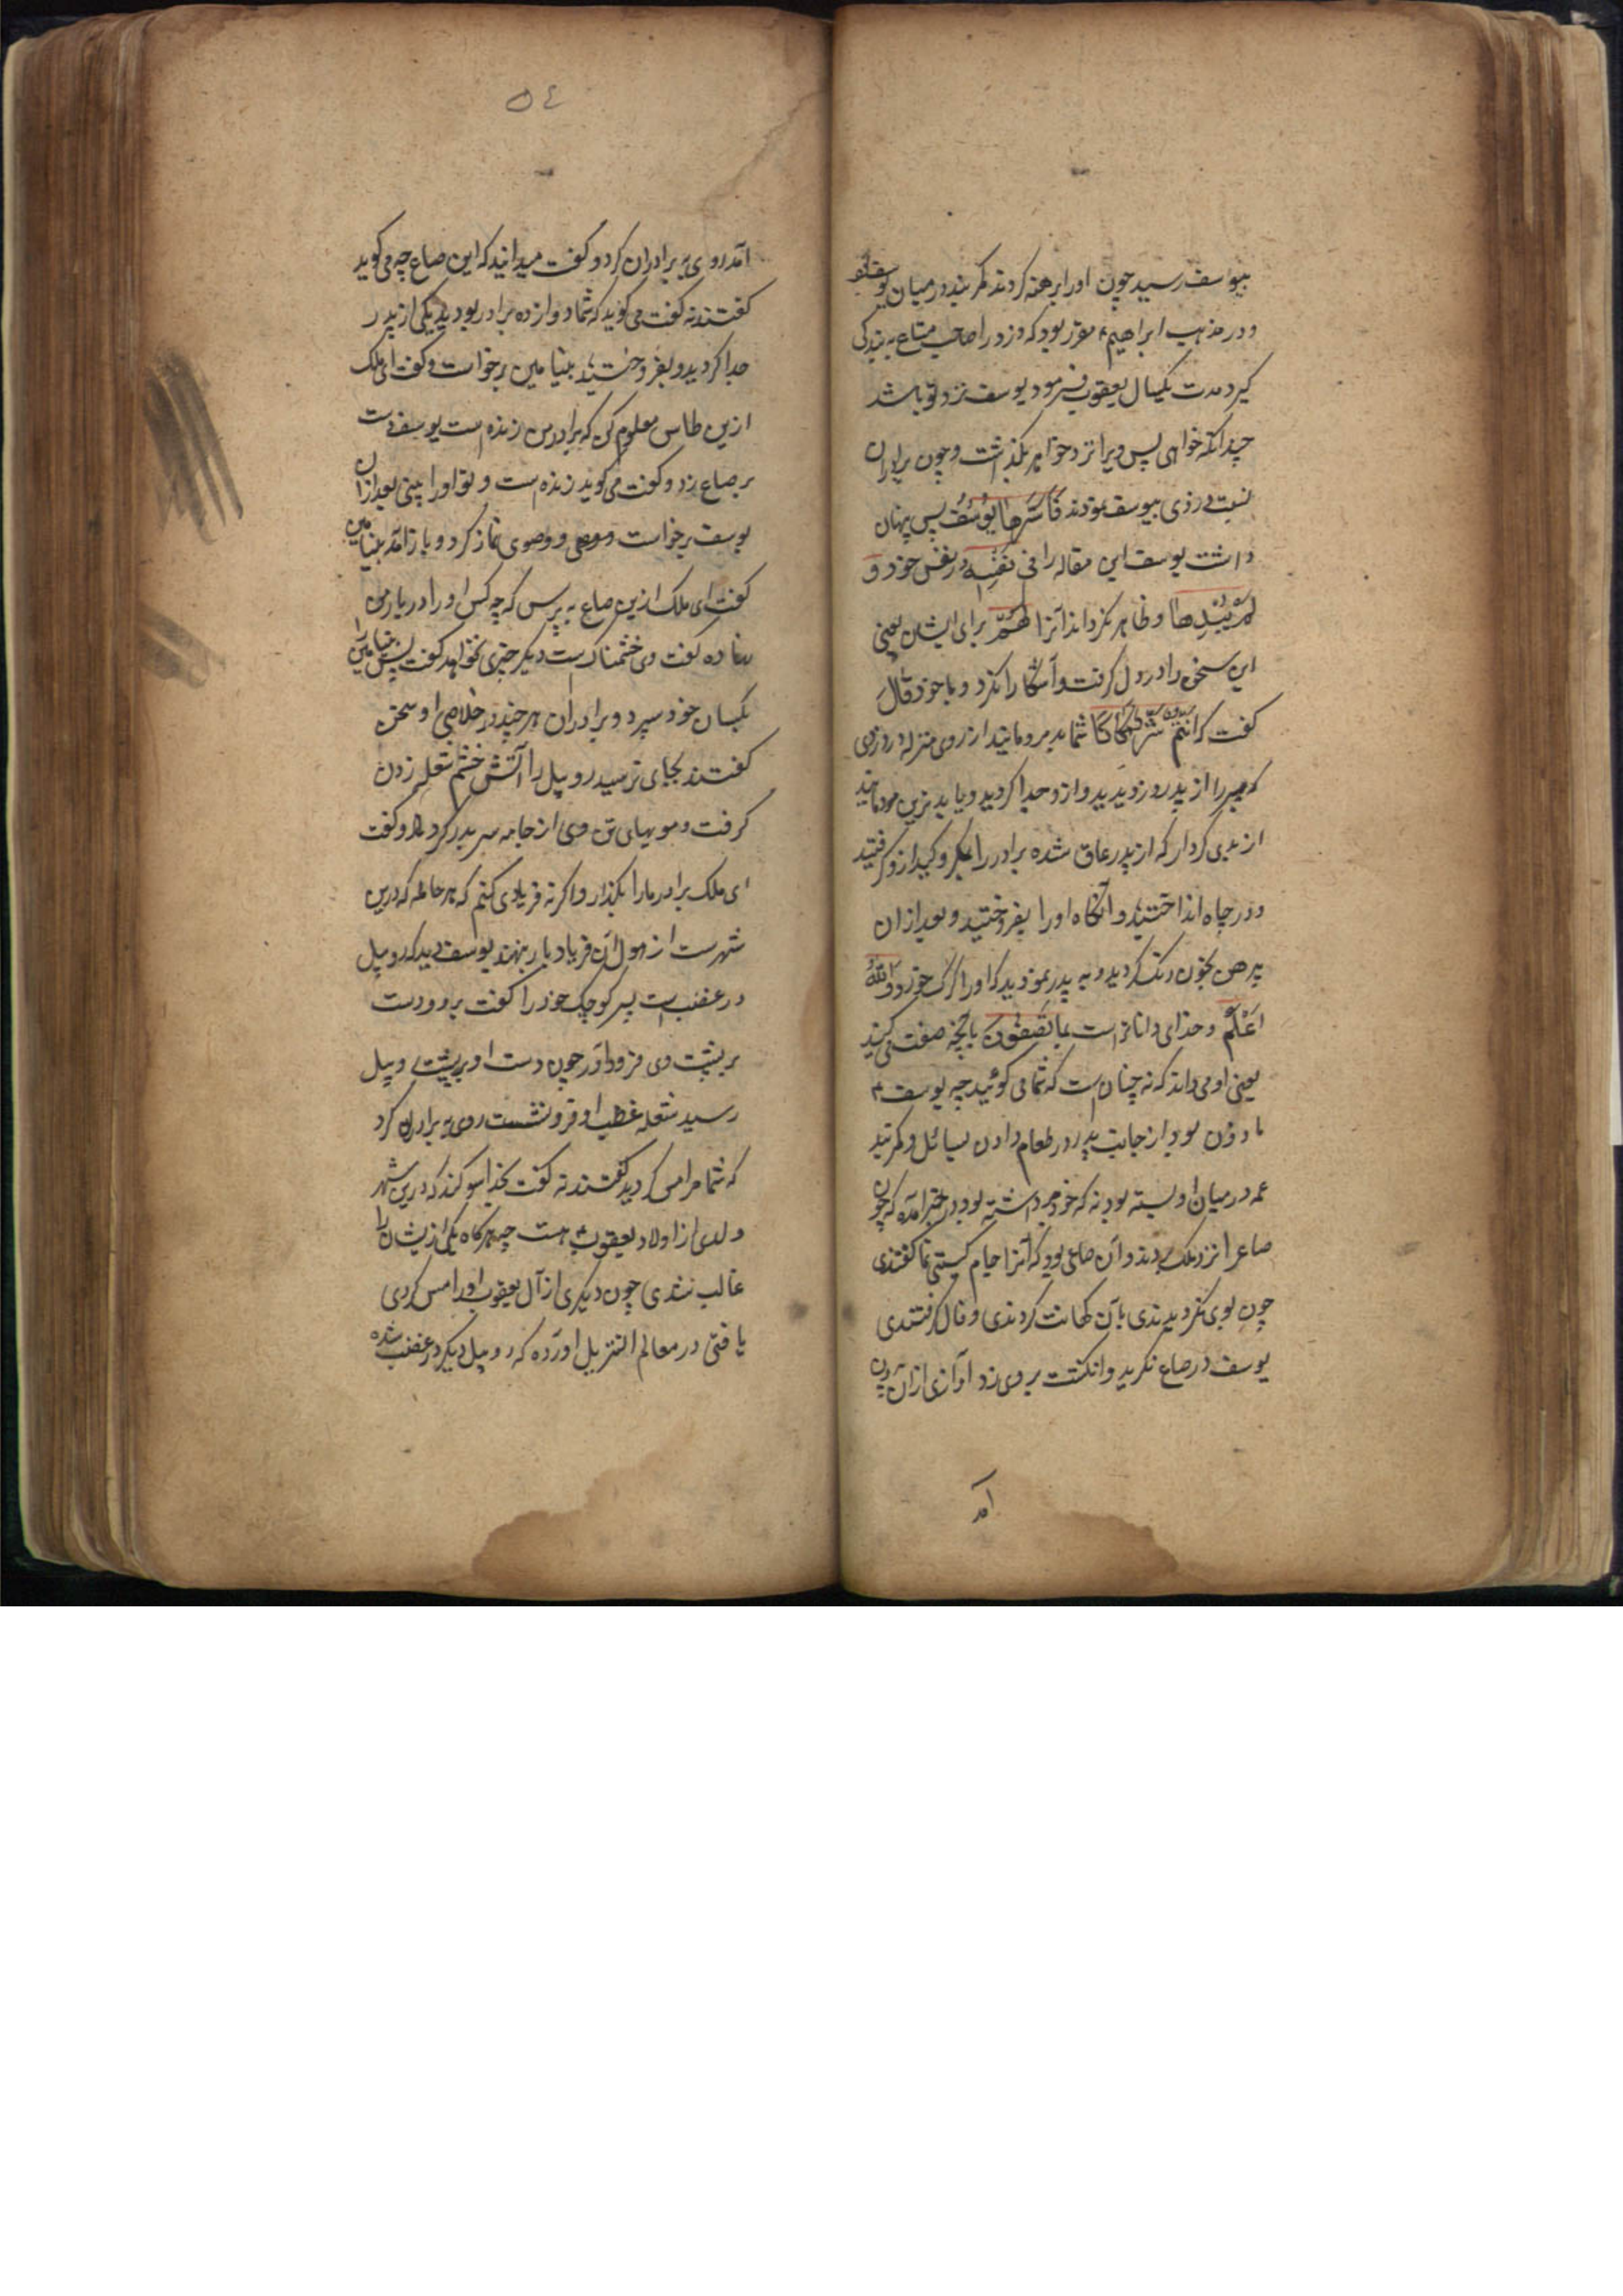 بیوسف رسید چون اورا برهنه کردند کمر بند در میان یوسف
و در مذهب ابراهیم ع مقرر بود که دزد را صاحب متاع به بندکی
کیرد مدت یکسال یعقوب فرمود یوسف نزد تو باشد
چندانکه خواهی پس ویرا نزد خواهر بکذاشت و چون برادران
نسبت دزدی بیوسف نمودند فَاَسَرَّهَا یُوسُفُ پس پنهان
داشت یوسف این مقاله را فِی نَفْسِهِ در نفس خود وَ
لَمْ یُبْدِهَا و ظاهر نکردانید آنرا لَهُمْ برای ایشان یعنی
این سخن را در دل کرفت و آشکارا نکرد و با خود قَالَ
کفت که اَنْتُمْ شَرٌّ مَکَانًا شما بد مردمانید از روی منزله در دزدی
که پسر را از پدر دزدیدید و از و جدا کردید و یا بدترین مردمانید
از بدی کردار که از پدر عاق شده برادر را بمکر و کید از و کرفتید
و در چاه انداختید و آنکاه اورا بفروختید و بعد از ان
پیرهن بخون رنک کردید و به پدر نمودید که اورا کرک خورد وَاللّٰهُ
اَعْلَمُ و خدای داناتر است بِمَا تَصِفُونَ بانچه صفت می کنید
یعنی او می داند که نه چنان است که شما می کوئید چه یوسف ع
ماذون بود از جانب پدر در طعام دادن بسائل و کمر بند
عمه در میان او بسته بود نه که خود برداشته بود در خبر آمده که چون
صاع را نزد ملک بردند و آن صاعی بود که آنرا جام کیتی نما کفتندی
چون بوی نکردیدندی بآن کهانت کردندی و فال کرفتندی
یوسف در صاع نکرید و انکشت بر وی زد آوازی از آن بیرون
آمد
۵۴
آمد روی به برادران کرد و کفت میدانید که این صاع چه می کوید
کفتند نه کفت می کوید که شما دوازده برادر بودید یکی از پدر
جدا کردید و بفروختید بنیامین برخواست و کفت ای ملک
ازین طاس معلوم کن که برادر من زنده است یوسف دست
بر صاع زد و کفت می کوید زنده است و تو اورا بینی بعد از ان
یوسف برخواست و وضوی نماز کرد و باز آمد بنیامین
کفت ای ملک ازین صاع به پرس که چه کس اورا در بار من
نهاده کفت وی خشمناک است دیکر چیزی نخواهد کفت پس بنیامین را
بکسان خود سپرد و برادران هر چند در خلاصی او سخن
کفتند بجای نرسید روبیل را آتش خشم شعله زدن
کرفت و مویهای تن وی از جامه سر بدر کرد و کفت
ای ملک برادر ما را بکذار و اکر نه فریادی کنم که هر حامله که درین
شهر ست از هول آن فریاد بار بنهد یوسف دید که روبیل
در غضب است پسر کوچک خود را کفت برو و دست
بر پشت وی فرود آور چون دست او بر پشت روبیل
رسید شعله غضب او فرو نشست روی به برادران کرد
که شما مرا مس کردید کفتند نه کفت بخدا سوکند که درین شهر
ولدی از اولاد یعقوب ع هست چه هرکاه یکی از ایشان را
غالب شدی چون دیکری از آل یعقوب اورا مس کردی
یا فتی در معالم التنزیل اورده که روبیل دیکر در غضب شده